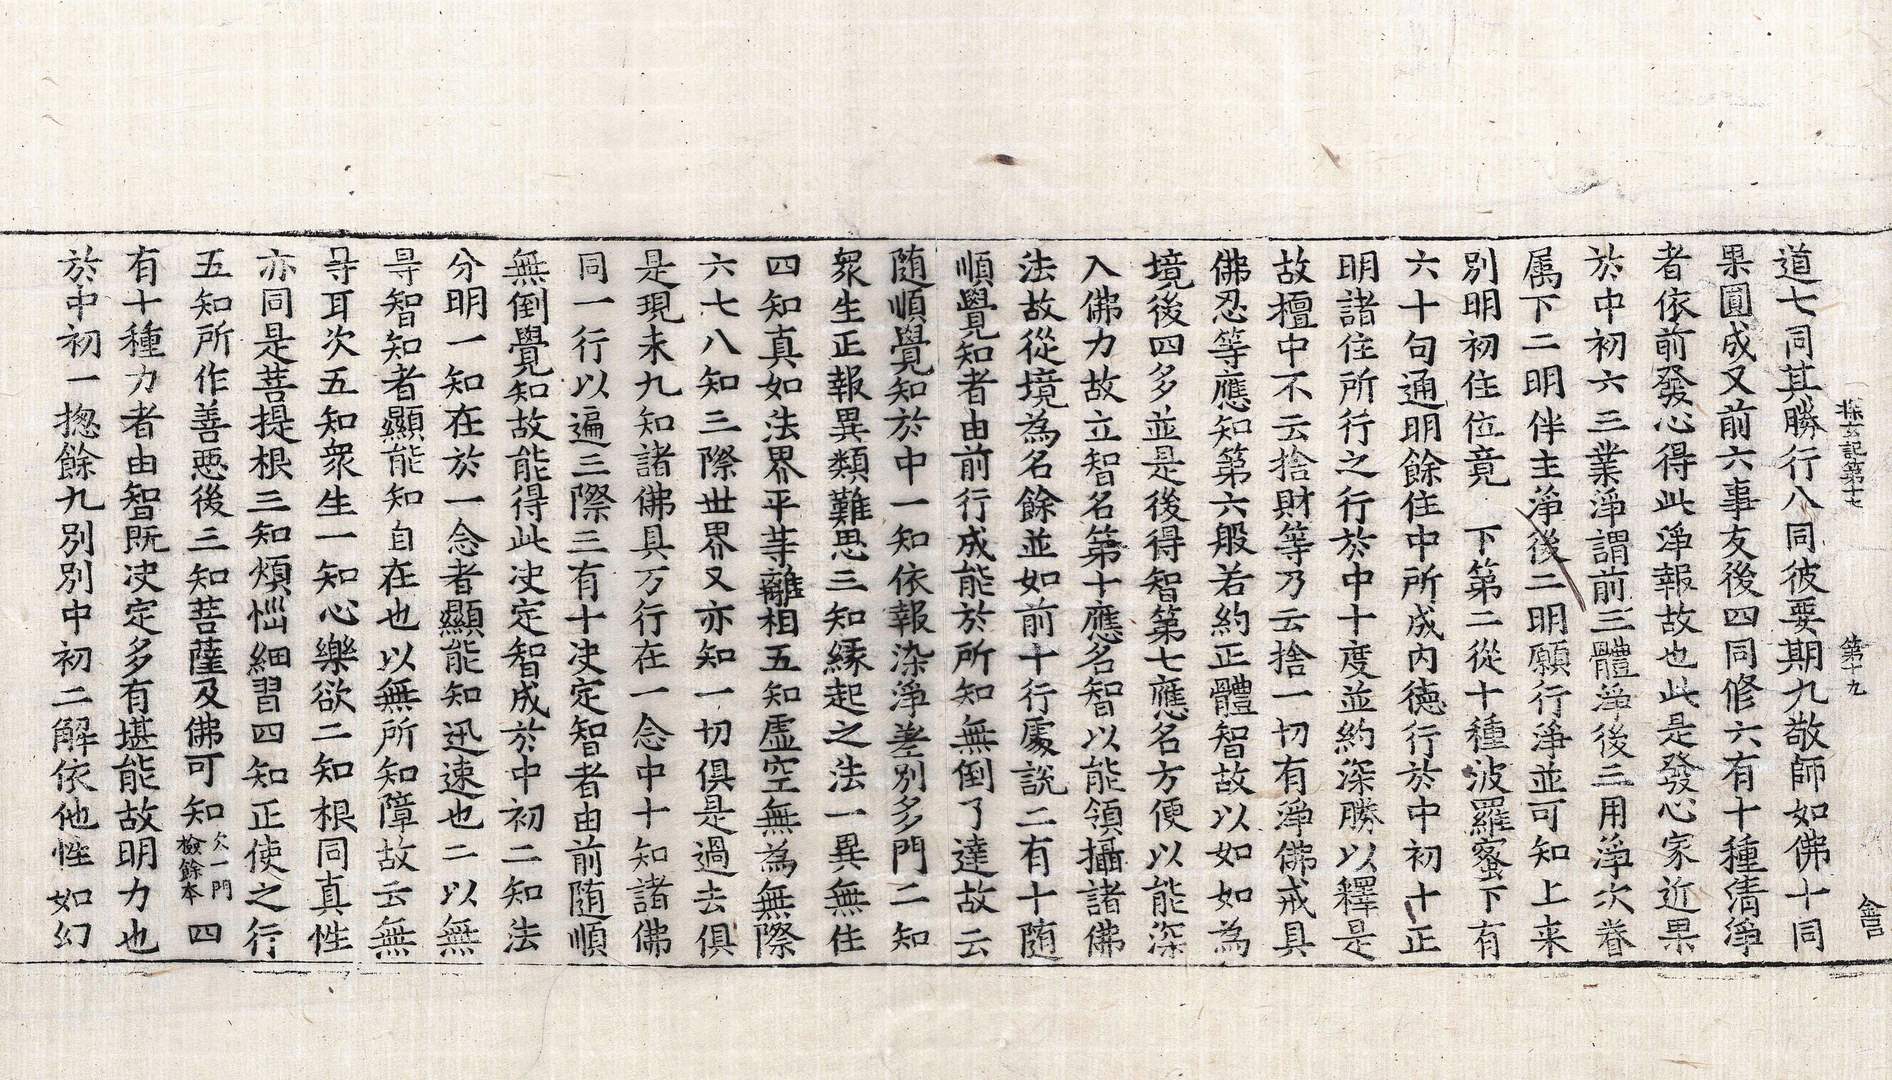 探玄記第十七　第十九　會
道七同其勝行八同彼要期九敬師如佛十同
果圓成又前六事友後四同修六有十種清淨
者依前發心得此淨報故也此是發心家近果
於中初六三業淨謂前三體淨後三用淨次眷
属下二明伴主淨後二明願行淨並可知上来
別明初住位竟　下第二從十種波羅蜜下有
六十句通明餘住中所成內德行於中初十正
明諸住所行之行於中十度並約深勝以釋是
故檀中不云捨財等乃云捨一切有淨佛戒具
佛忍等應知第六般若約正體智故以如如為
境後四多並是後得智第七應名方便以能深
入佛力故立智名第十應名智以能領攝諸佛
法故從境為名餘並如前十行處說二有十随
順覺知者由前行成能於所知無倒了達故云
随順覺知於中一知依報染淨差別多門二知
衆生正報異類難思三知緣起之法一異無住
四知真如法界平等離相五知虛空無為無際
六七八知三際世界又亦知一切俱是過去俱
是現未九知諸佛具万行在一念中十知諸佛
同一行以遍三際三有十决定智者由前随順
無倒覺知故能得此决定智成於中初二知法
分明一知在於一念者顯能知迅速也二以無
㝵智知者顯能知自在也以無所知障故云無
㝵耳次五知衆生一知心樂欲二知根同真性
亦同是菩提根三知煩惱細習四知正使之行
五知所作善惡後三知菩薩及佛可知欠一門檢餘本四
有十種力者由智既决定多有堪能故明力也
於中初一揔餘九別別中初二解依他性如幻